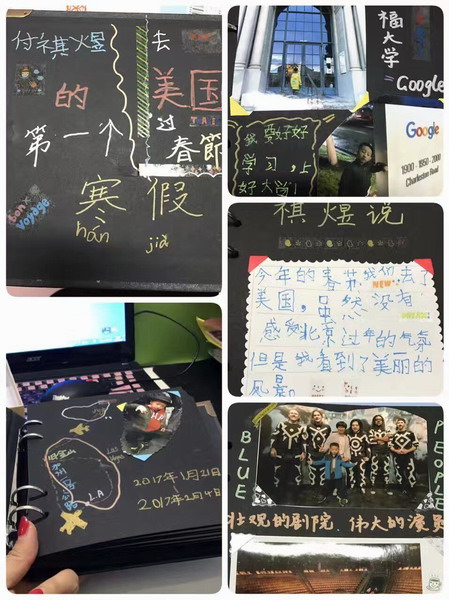 付祺煜 去
的 美国
过
第一个 春節
寒假
hán jià
bon Voyage
福
大学
=
Google
我要好好
学习,上
好大学!
Google
1900 - 1950 - 2000
Charleston Road
祺煜说
今年的春节,我们去了
NEW
美国,虽然没有
感受北京过年的气氛
但是我看到了美丽的
风景。
acer
旧金山
L.A
2017年1月21日
~
2017年2月4日
BLUE
PEOPLE
壮观的剧院.伟大的演员